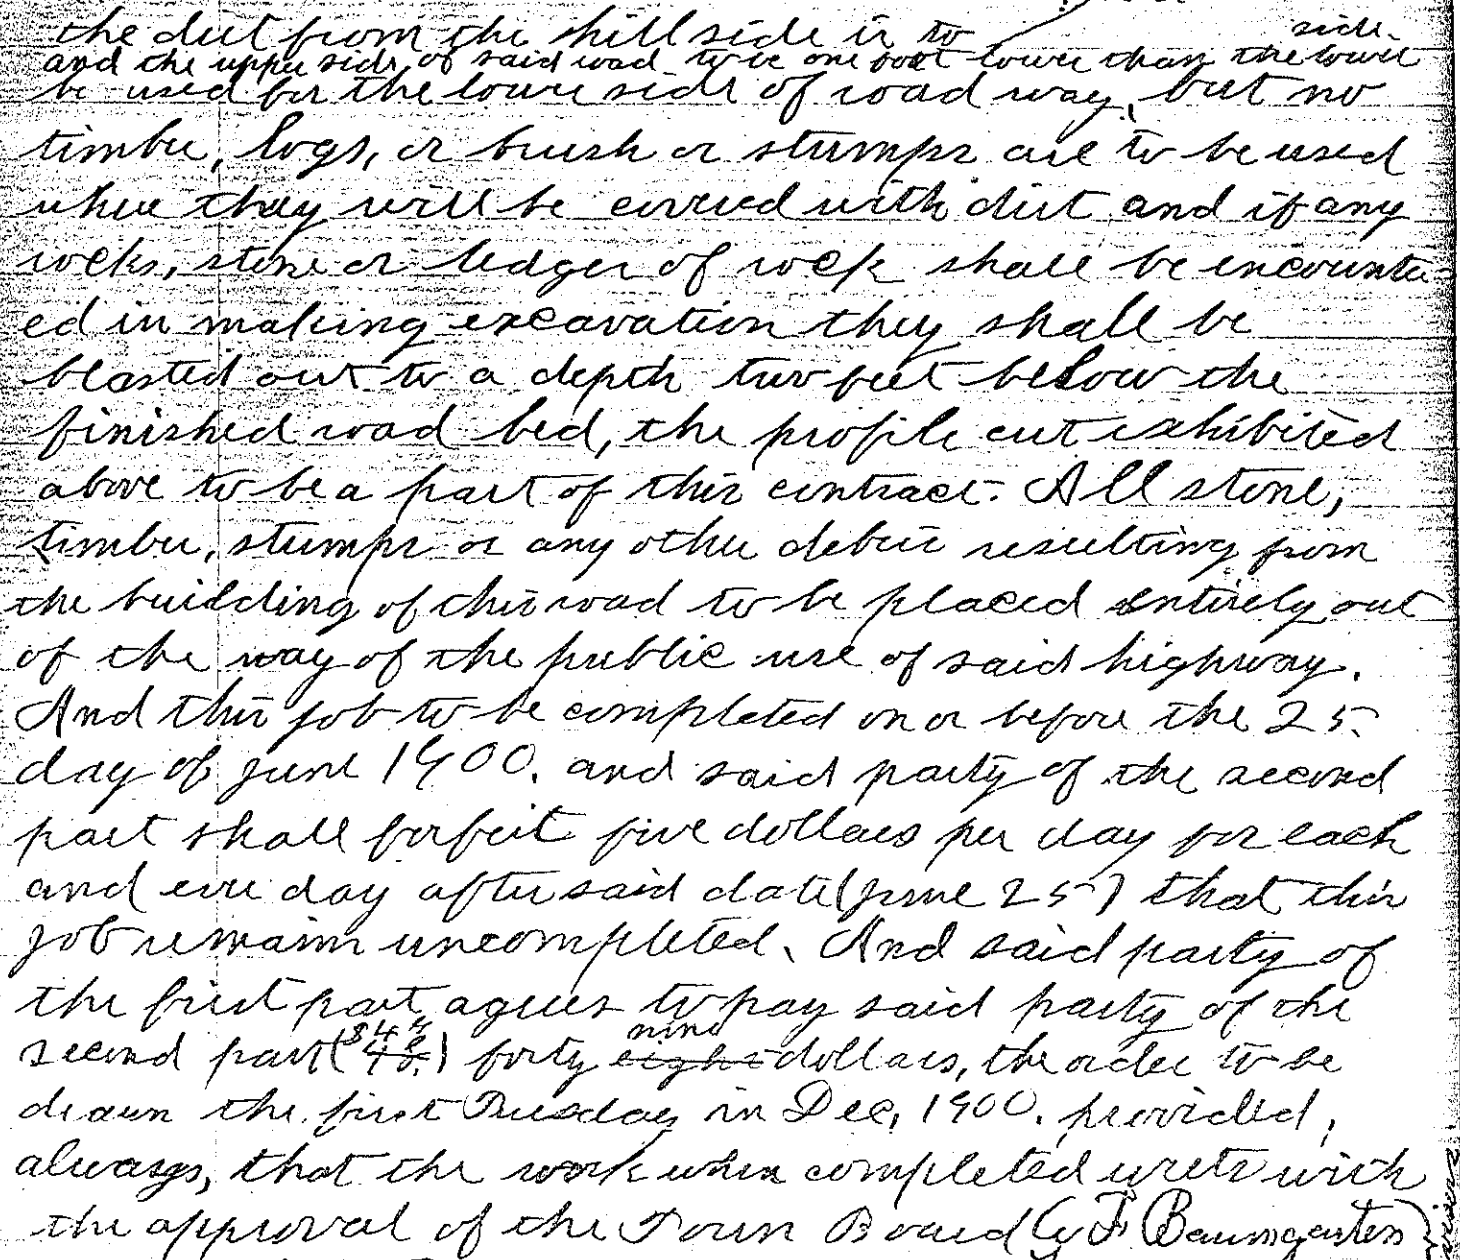 the dirt from the hillside is to
side
and the upper side of said road to be one foot lower than the lower
be used for the lower side of road way, but no
timber, logs, or brush or stumps are to be used
where they will be covered with dirt and if any
rocks, stone or ledger of rock shall be encounter-
ed in making excavation they shall be
blasted out to a depth two feet below the
finished road bed, the profile cut exhibited
above to be a part of this contract. All stone,
timber, stumps or any other debris resulting from
the building of this road to be placed entirely out
of the way of the public use of said highway.
And this job to be completed on or before the 25
day of June 1900. and said party of the second
part shall forfeit five dollars per day for each
and every day after said date (June 25) that this
job remain uncompleted. And said party of
the first part agrees to pay said party of the
nine
second part ($49 48.) forty eight dollars, the order to be
drawn the first Tuesday in Dec, 1900. provided,
always, that the work when completed meets with
the approval of the Town Board ( F. Baumgarten)